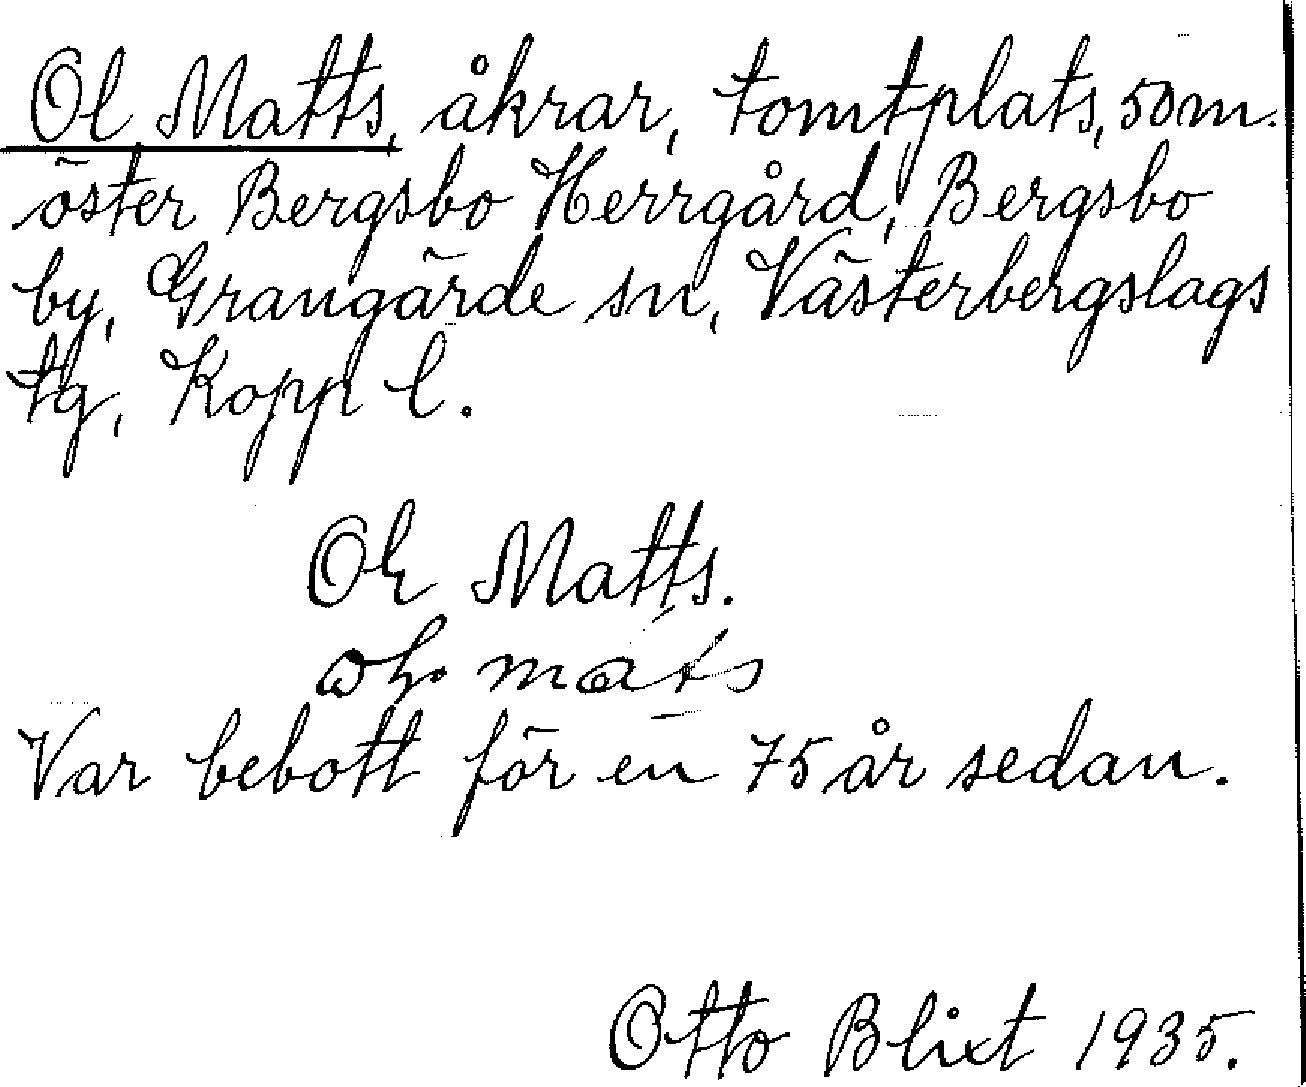 Ol Matts, åkrar, tomtplats, 50 m.
öster Bergsbo Herrgård, Bergsbo
by, Grangärde sn, Västerbergslags
tg, Kopp l.
Matts.
Var bebott för en 75 år sedan.
Otto Blixt 1935.